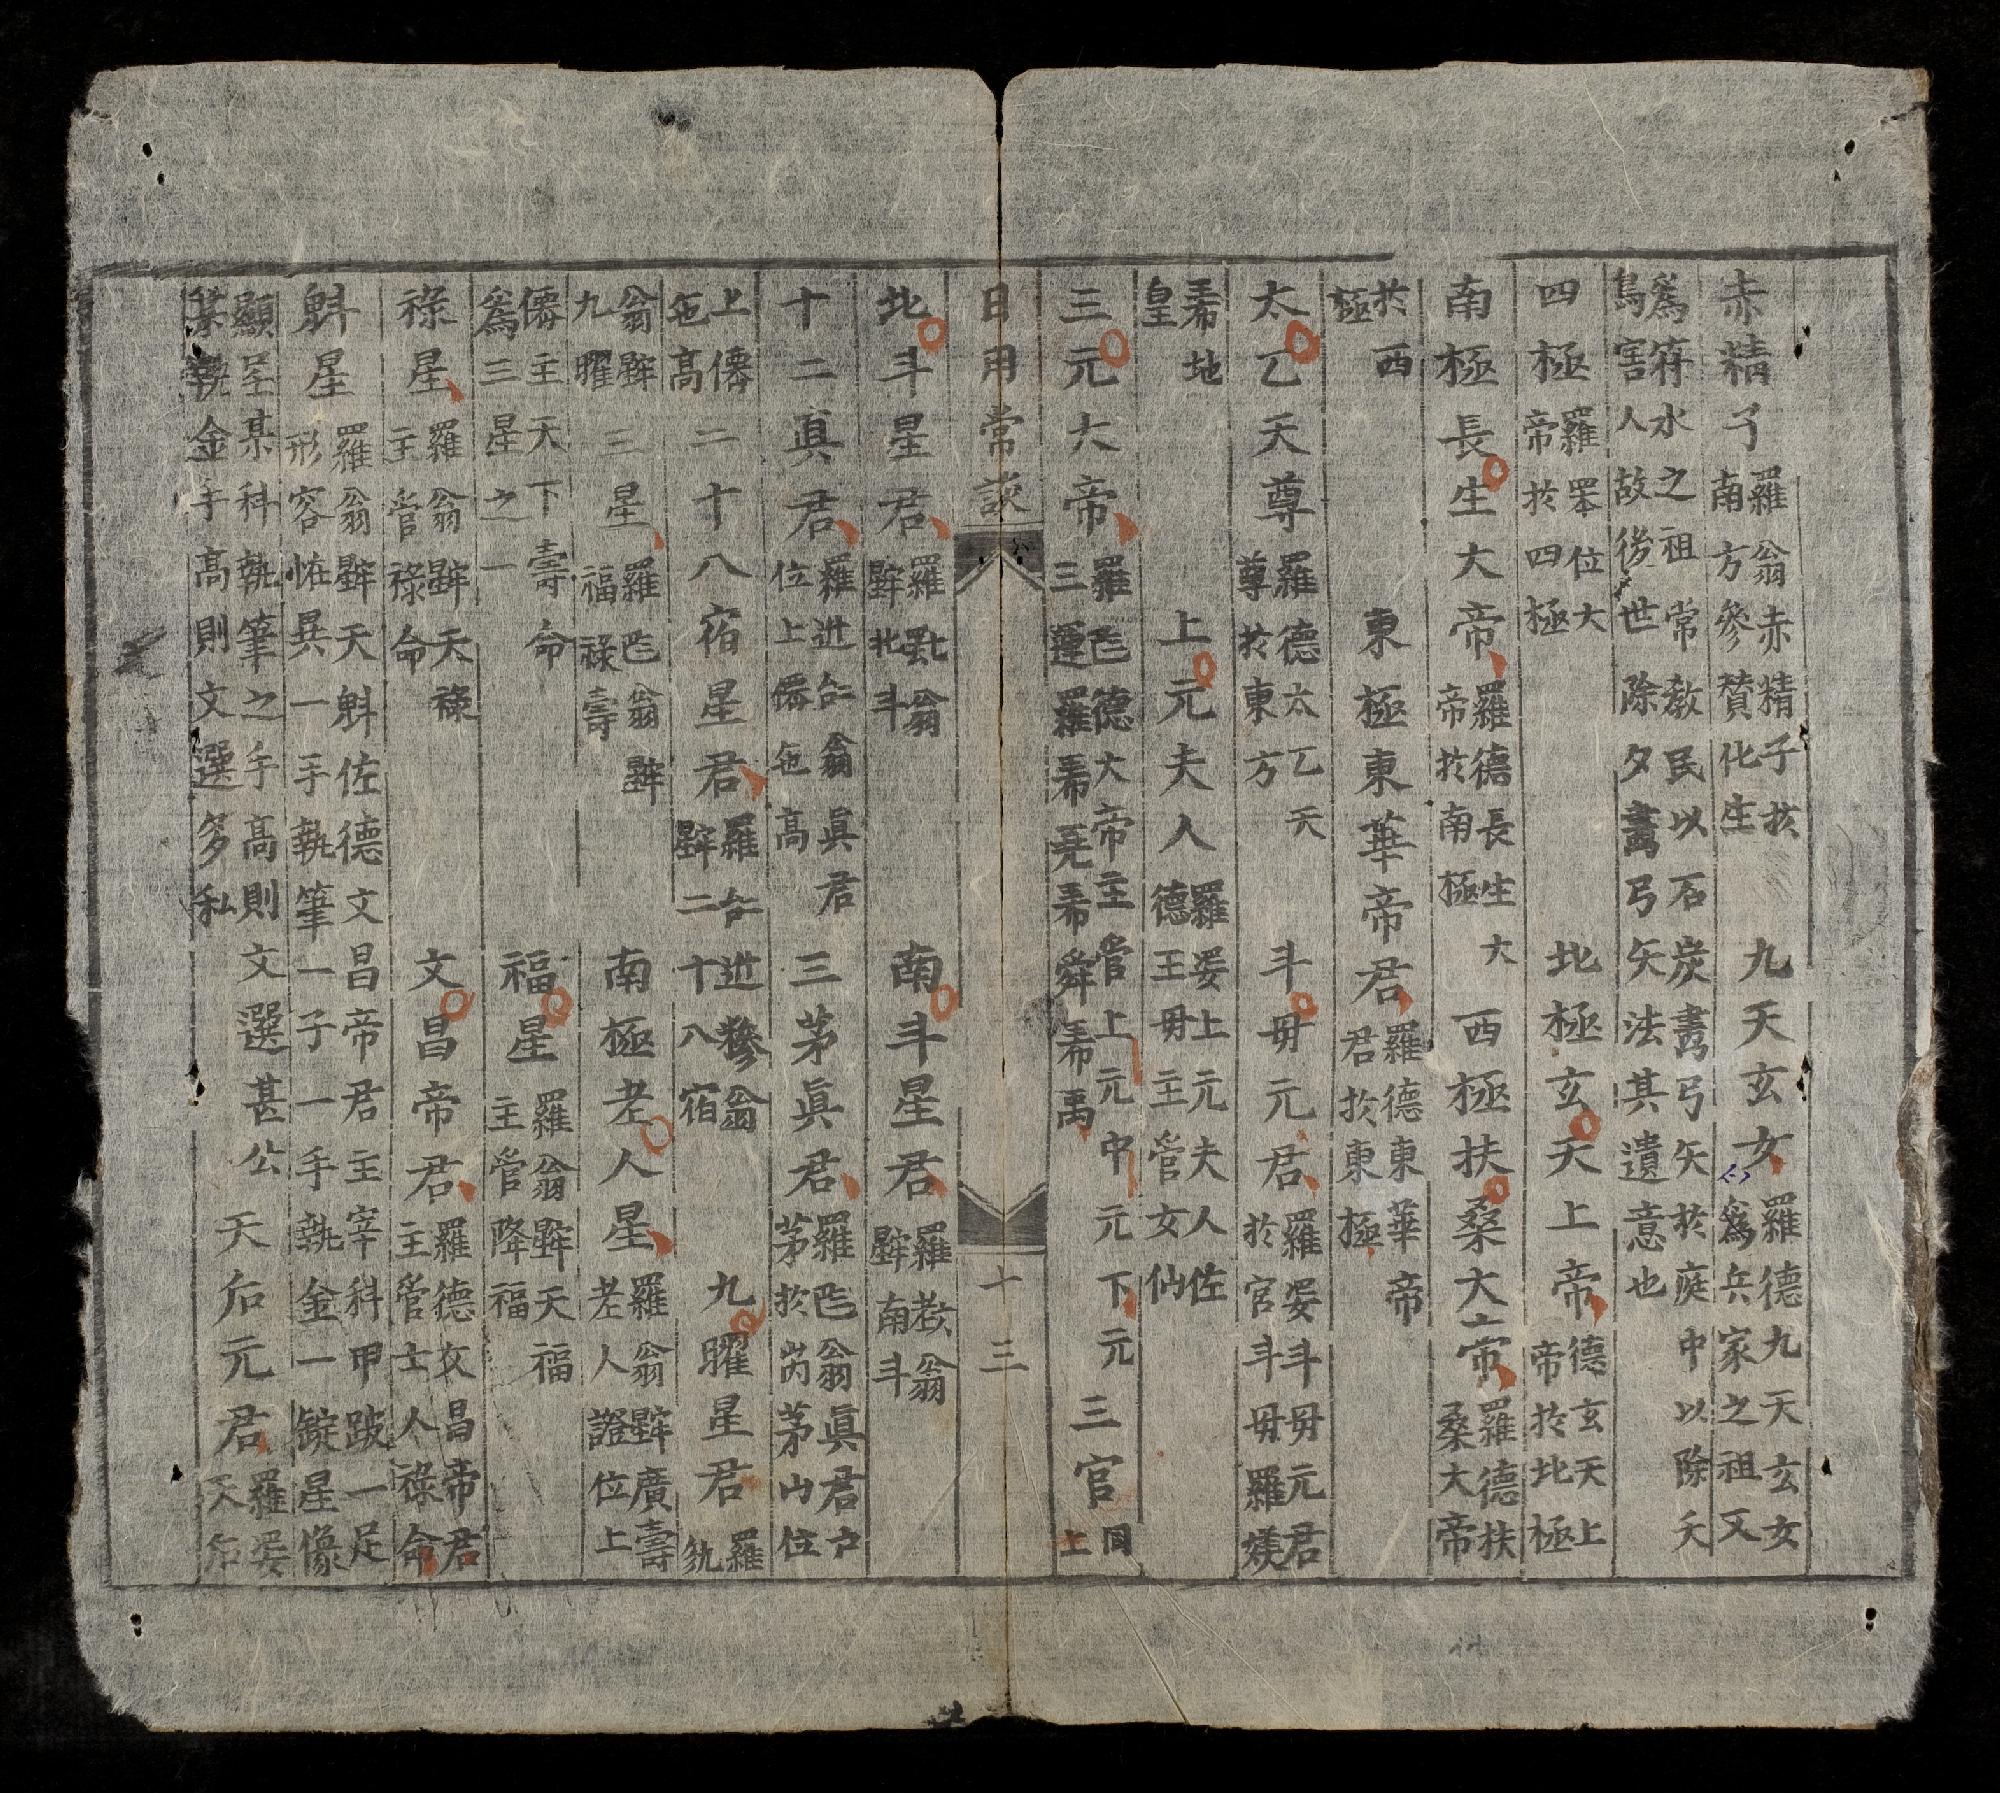 赤精子羅翁赤精子於南方參贊化生 九天玄女羅德九天玄女爲兵家之祖又
爲符水之祖常教民以石炭畫弓矢於庭中以除夭鳥害人故後世除夕畫弓矢法其遺意也
四極羅𦊚位大帝於四極 北極玄天上帝德玄天上帝於北極
南極長生大帝羅德長生大帝於南極 西極扶桑大帝羅德扶桑大帝
於西極 東極東華帝君羅德東華帝君於東極
太乙天尊羅德太乙天尊於東方 斗毋元君羅妥斗毋元君於官斗毋羅媄
𢂜地皇 上元夫人羅妥上元夫人佐德王毋主管女仙
三元大帝羅𠀧德大帝主管上元中元下元三羅𢂜堯𢂜舜𢂜禹 三官同上
日用常談 十三
北斗星君羅𦉱翁𣋀北斗 南斗星君羅𦒹翁𣋀南斗
十二真君羅𨑮𠄩翁真君位上僊𡗉高 三茅真君羅𠀧翁真君户茅於芮茅山位
上僊𡗉高 二十八宿星君羅𠄩𨑮糝翁𣋀二十八宿 九曜星君羅𠃩
翁𣋀九曜 三星羅𠀧翁𣋀福祿壽 南極老人星羅翁𣋀廣壽老人證位上
僊主天下壽命爲三星之一 福星羅翁𣋀天福主管降福
祿星羅翁𣋀天祿主管祿命 文昌帝君羅德文昌帝君主管士人祿命
魁星羅翁𣋀天魁佐德文昌帝君主宰科甲跛一足形容恠異一手執筆一子一手執金一錠星像
顯呈某科執筆之手高則文選甚公某執金手高則文選多私 天后元君羅妥天后